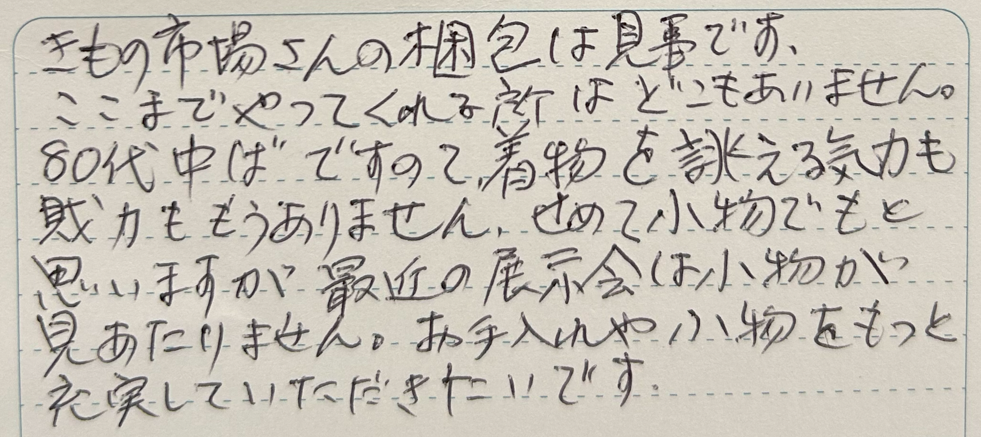 きもの市場さんの梱包は見事です、
ここまでやってくれる所はどこもありません。
80代中ばですので、着物を誂える気力も
財力ももうありません、せめて小物でもと
思いますが最近の展示会は小物が
見あたりません。お手入れや小物をもっと
充実していただきたいです。